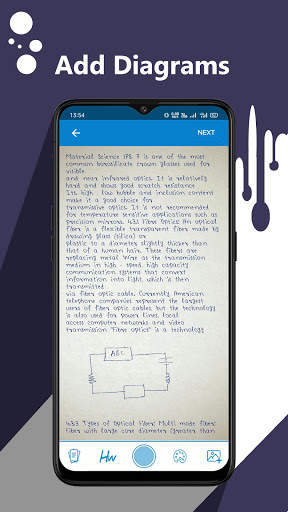 Add Diagrams
13:54
NEXT
Material Science (PS 7 is one of the most
common borosilicate crown glasses used for
visible
and near infrared optics. It is relatively
hard and shows good scratch resistance
Its high, low bubble and inclusion content
make it a good choice for
transmissive optics. It is not recommended
for temperature sensitive applications such as
precision mirrors. 4.3.1 Fibre Optics An optical
fiber is a flexible transparent fiber made by
drawing glass (silica) or
plastic to a diameter slightly thicker than
that of a human hair. These fibers are
replacing metal wire as the transmission
medium in high - speed, high capacity
communication systems that convert
information into light, which is then
transmitted
via fiber optic cable. Currently, American
telephone companies represent the largest
users of fiber optic cables, but the technology
is also used for power lines, local
access computer networks, and video
transmission. "Fiber optics" is a technology
ABC
4.3.3 Types of Optical Fiber: Multi mode fiber:
Fiber with large core diameter (greater than
Hw